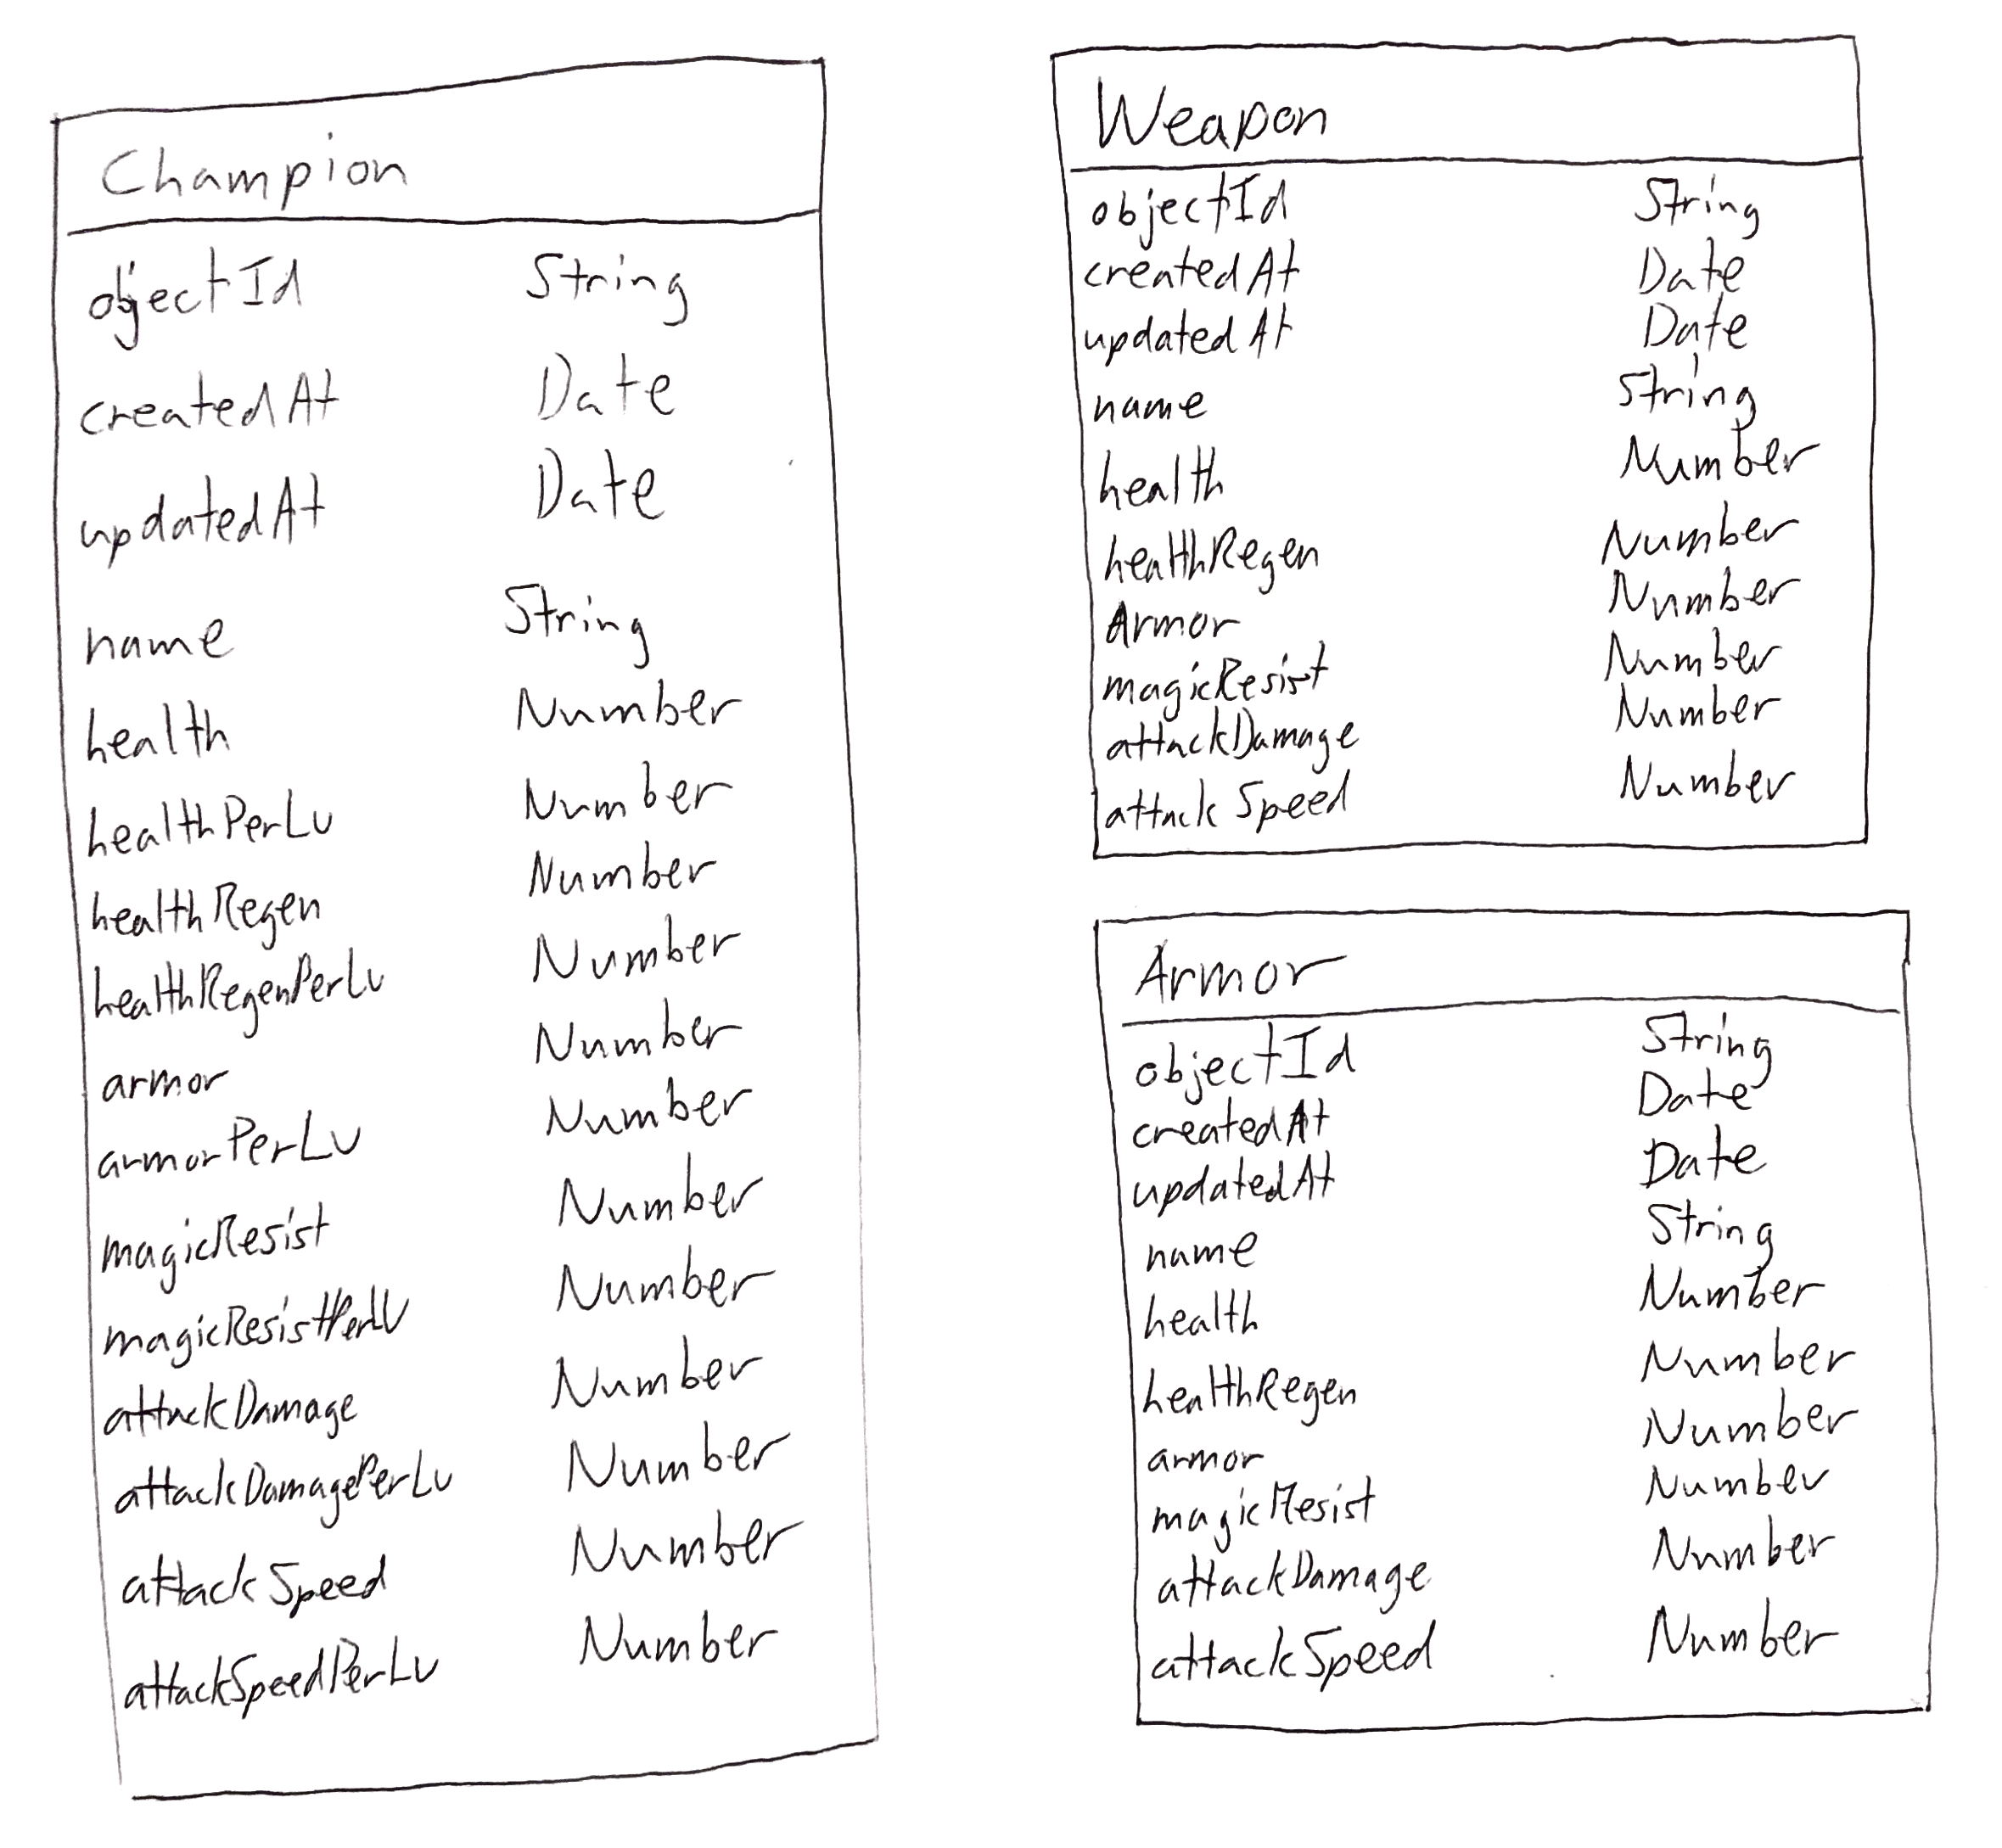 Champion
objectId String
createdAt Date
updatedAt Date
name String
health Number
healthPerLv Number
healthRegen Number
healthRegenPerLv Number
armor Number
armorPerLv Number
magicResist Number
magicResistPerLV Number
attackDamage Number
attackDamagePerLv Number
attackSpeed Number
attackSpeedPerLv Number
Weapon
objectId String
createdAt Date
updatedAt Date
name String
health Number
healthRegen Number
Armor Number
magicResist Number
attackDamage Number
attackSpeed Number
Armor
objectId String
createdAt Date
updatedAt Date
name String
health Number
healthRegen Number
armor Number
magicResist Number
attackDamage Number
attackSpeed Number